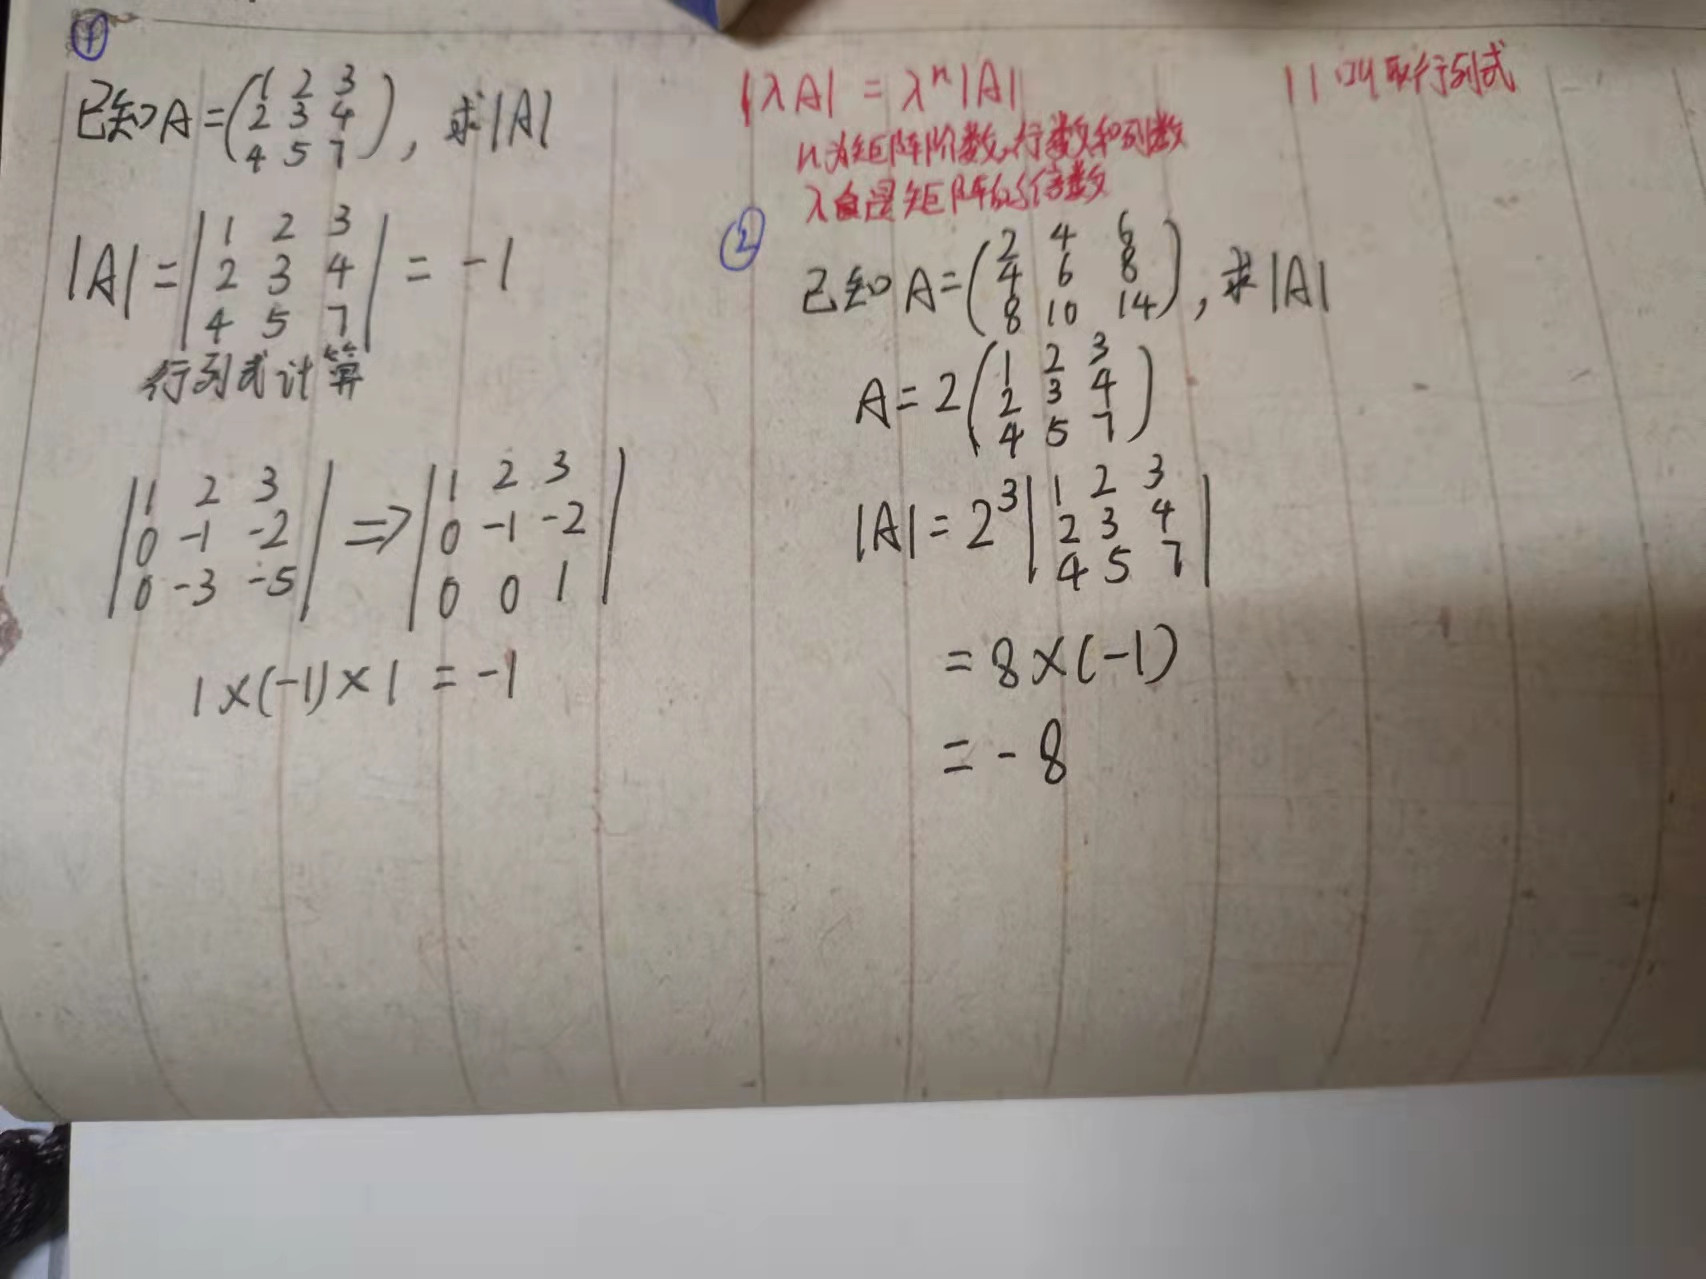 ①
已知A=(1 2 3
2 3 4
4 5 7), 求|A|
|A|=|1 2 3
2 3 4
4 5 7|=-1
行列式计算
|1 2 3
0 -1 -2
0 -3 -5| => |1 2 3
0 -1 -2
0 0 1|
1×(-1)×1=-1
|λA|=λⁿ|A|
n为矩阵阶数,行数和列数
λ 是矩阵的倍数
| | 叫取行列式
②
已知A=(2 4 6
4 6 8
8 10 14), 求|A|
A=2(1 2 3
2 3 4
4 5 7)
|A|=2³|1 2 3
2 3 4
4 5 7|
=8×(-1)
=-8